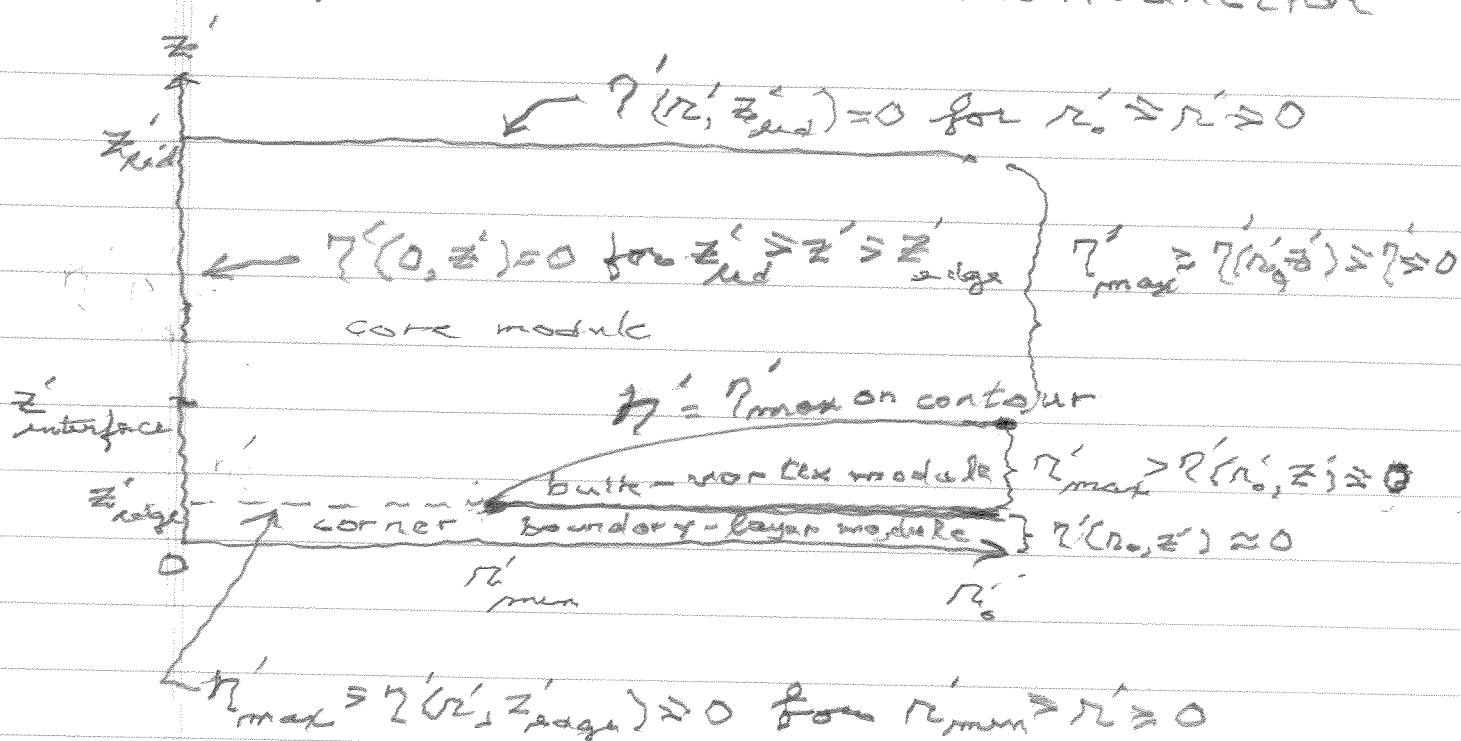 z'
η'(r', z'lid) = 0 for r'o ≥ r' ≥ 0
z'lid
η'(0, z') = 0 for z'lid ≥ z' ≥ z'edge
η'max ≥ η'(r'o, z') ≥ η' ≥ 0
core module
z'interface
η' = η'max on contour
bulk-vortex module
η'max > η'(r'o, z') ≥ 0
z'edge
corner
boundary-layer module
η'(ro, z') ≈ 0
0
r'min
r'o
η'max ≥ η'(r', z'edge) ≥ 0 for r'min ≥ r' ≥ 0